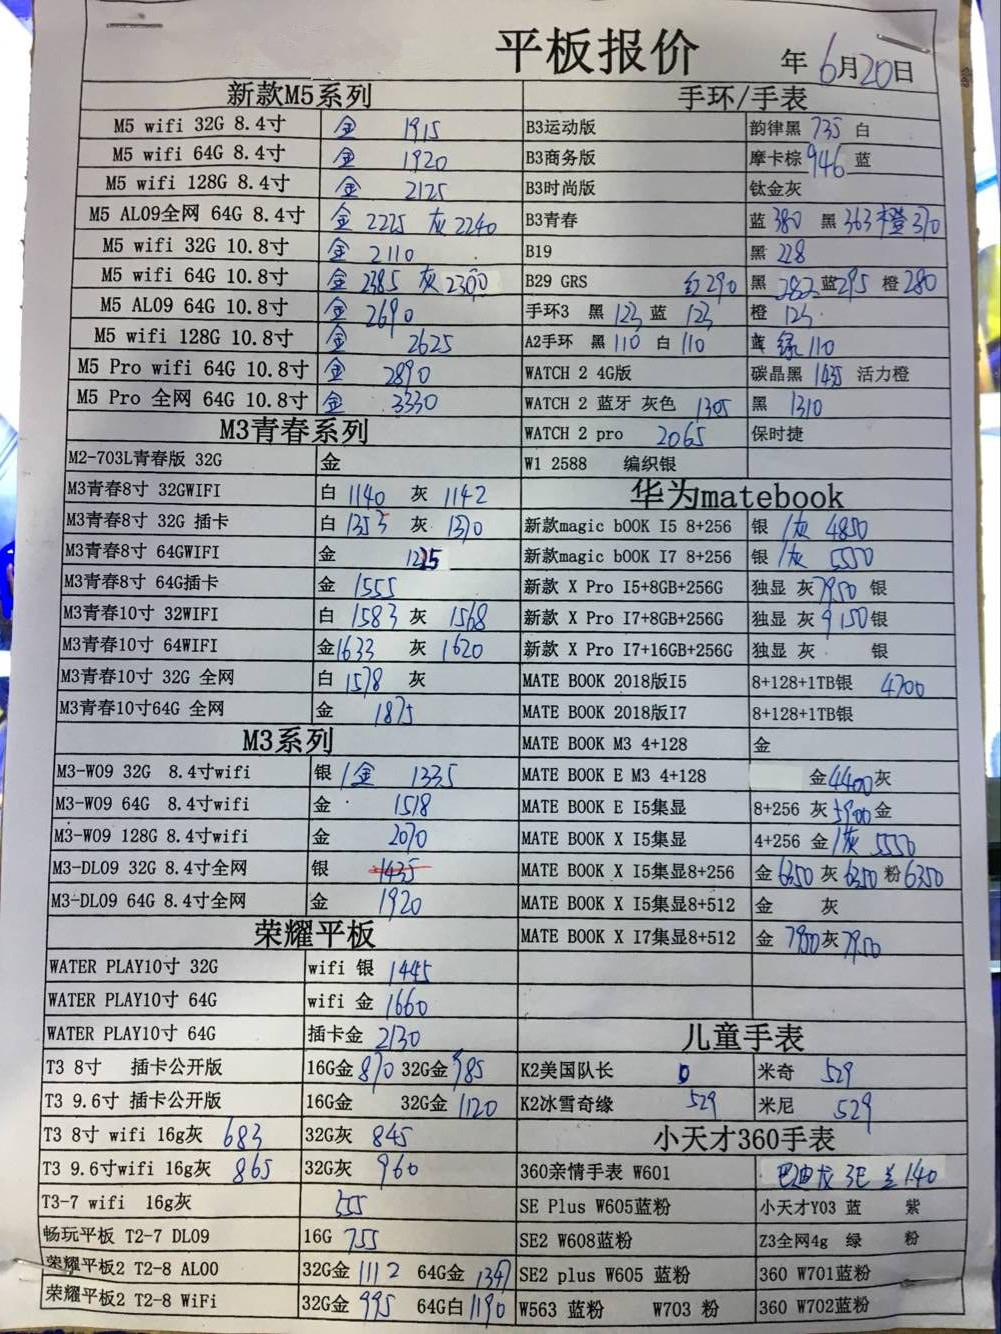 平板报价 年6月20日
新款M5系列
M5 wifi 32G 8.4寸 金 1915
M5 wifi 64G 8.4寸 金 1920
M5 wifi 128G 8.4寸 金 2125
M5 AL09全网 64G 8.4寸 金 2225 灰 2240
M5 wifi 32G 10.8寸 金 2110
M5 wifi 64G 10.8寸 金 2385 灰 2300
M5 AL09 64G 10.8寸 金 2690
M5 wifi 128G 10.8寸 金 2625
M5 Pro wifi 64G 10.8寸 金 2890
M5 Pro 全网 64G 10.8寸 金 3330
M3青春系列
M2-703L青春版 32G 金
M3青春8寸 32GWIFI 白 1140 灰 1142
M3青春8寸 32G 插卡 白 1353 灰 1370
M3青春8寸 64GWIFI 金
M3青春8寸 64G插卡 金 1555
M3青春10寸 32WIFI 白 1583 灰 1568
M3青春10寸 64WIFI 金1633 灰 1620
M3青春10寸 32G 全网 白 1578 灰
M3青春10寸64G 全网 金 1875
M3系列
M3-W09 32G 8.4寸wifi 银/金 1335
M3-W09 64G 8.4寸wifi 金 1518
M3-W09 128G 8.4寸wifi 金 2070
M3-DL09 32G 8.4寸全网 银 1435
M3-DL09 64G 8.4寸全网 金 1920
荣耀平板
WATER PLAY10寸 32G wifi 银 1445
WATER PLAY10寸 64G wifi 金 1660
WATER PLAY10寸 64G 插卡金 2130
T3 8寸 插卡公开版 16G金 870 32G金 985
T3 9.6寸 插卡公开版 16G金 32G金 1120
T3 8寸 wifi 16g灰 683 32G灰 845
T3 9.6寸wifi 16g灰 865 32G灰 960
T3-7 wifi 16g灰 555
畅玩平板 T2-7 DL09 16G 755
荣耀平板2 T2-8 AL00 32G金 1112 64G金 1347
荣耀平板2 T2-8 WiFi 32G金 995 64G白 1190
手环/手表
B3运动版 韵律黑 735 白
B3商务版 摩卡棕 946 蓝
B3时尚版 钛金灰
B3青春 蓝 380 黑 363 橙 370
B19 黑 228
B29 GRS 红290 黑 282 蓝295 橙 280
手环3 黑 123 蓝 123 橙 125
A2手环 黑 110 白 110 绿 110
WATCH 2 4G版 碳晶黑 1435 活力橙
WATCH 2 蓝牙 灰色 1305 黑 1310
WATCH 2 pro 2065 保时捷
W1 2588 编织银
华为matebook
新款magic bOOK I5 8+256 银/灰 4850
新款magic bOOK I7 8+256 银/灰 5550
新款 X Pro I5+8GB+256G 独显 灰7950 银
新款 X Pro I7+8GB+256G 独显 灰9150银
新款 X Pro I7+16GB+256G 独显 灰 银
MATE BOOK 2018版I5 8+128+1TB银 4700
MATE BOOK 2018版I7 8+128+1TB银
MATE BOOK M3 4+128 金
MATE BOOK E M3 4+128 金4400灰
MATE BOOK E I5集显 8+256 灰5900金
MATE BOOK X I5集显 4+256 金/灰 5550
MATE BOOK X I5集显8+256 金6350 灰6350 粉6350
MATE BOOK X I5集显8+512 金 灰
MATE BOOK X I7集显8+512 金 7950灰7950
儿童手表
K2美国队长 米奇 529
K2冰雪奇缘 529 米尼 529
小天才360手表
360亲情手表 W601 巴迪龙 3E 兰 140
SE Plus W605蓝粉 小天才Y03 蓝 紫
SE2 W608蓝粉 Z3全网4g 绿 粉
SE2 plus W605 蓝粉 360 W701蓝粉
W563 蓝粉 W703 粉 360 W702蓝粉